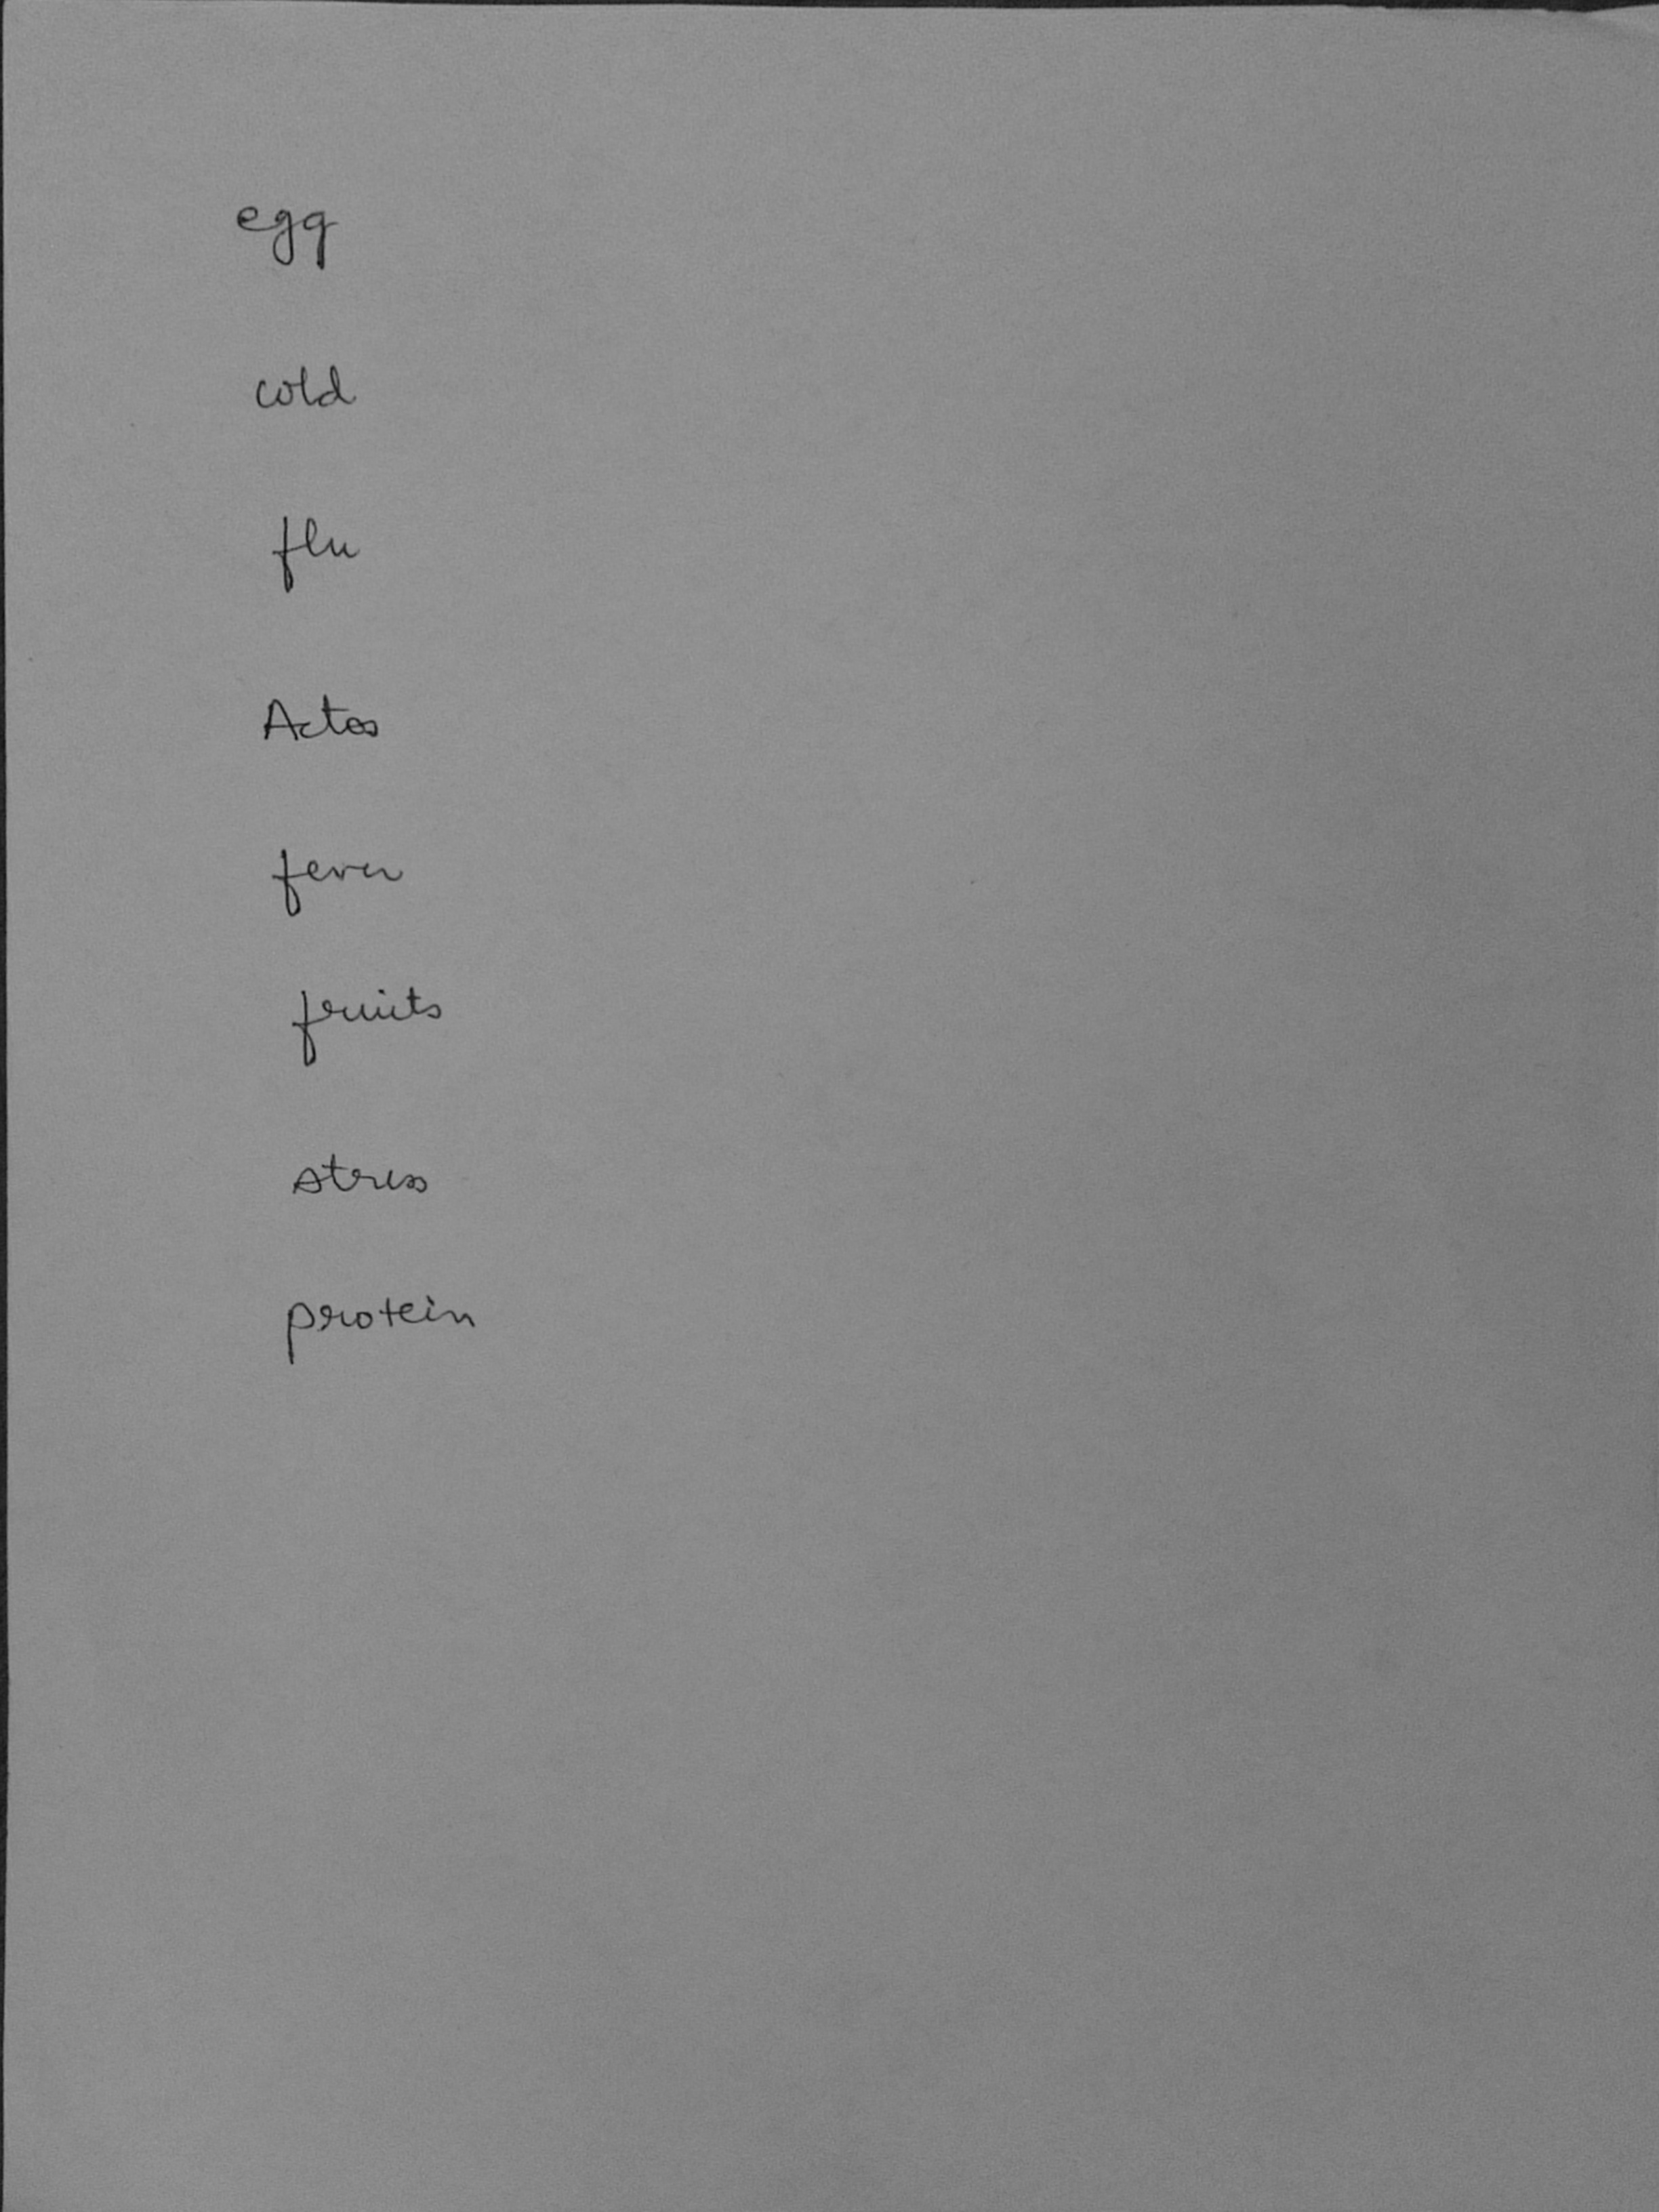 egg
cold
flu
Actos
fever
fruits
stress
protein